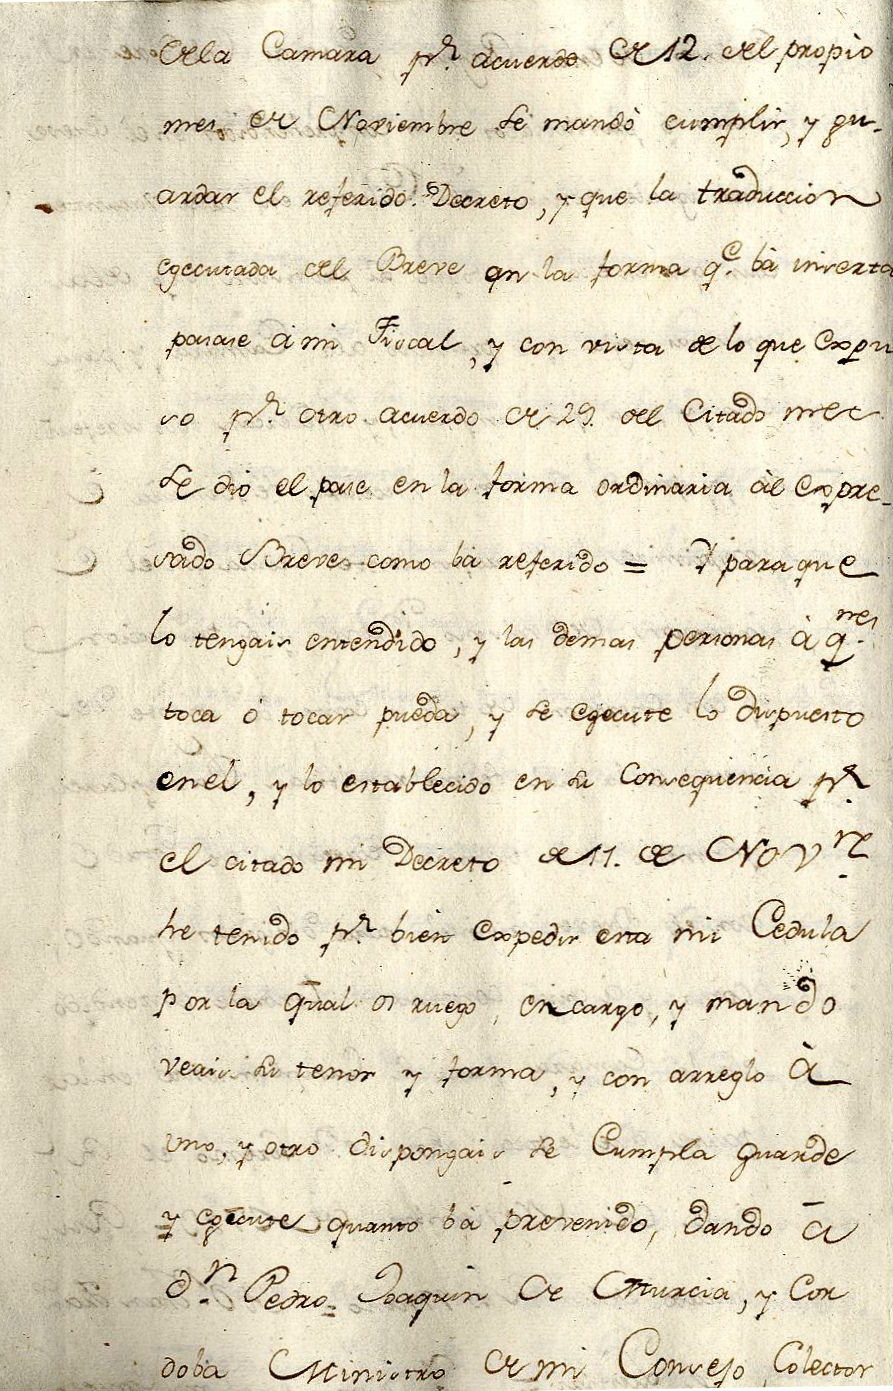 dela Camara pr. acuerdo de 12. del propio
mes de Noviembre se mandò cumplir, y gu-
ardar el referido Decreto, y que la traduccion
egecutada del Breve en la forma qe. bà inserta
pasase à mi Fiscal, y con vista de lo que expu
so pr. otro acuerdo de 29. del Citado mes
se dió el pase en la forma ordinaria àl expre-
sado Breve como bà referido = Y para que
lo tengais entendido, y las demas personas à qnes.
toca ó tocar pueda, y se egecute lo dispuesto
en el, y lo establecido en su Consequencia pr.
el citado mi Decreto de 11. de Novre.
he tenido pr. bien expedir esta mi Cedula
por la qual os ruego, encargo, y mando
veais su tenor y forma, y con arreglo à
uno, y otro dispongais se Cumpla guarde
y egecute quanto bà prevenido, dando à
Dn. Pedro Joaquin de Murcia, y Cor
doba Ministro de mi Consejo Colector